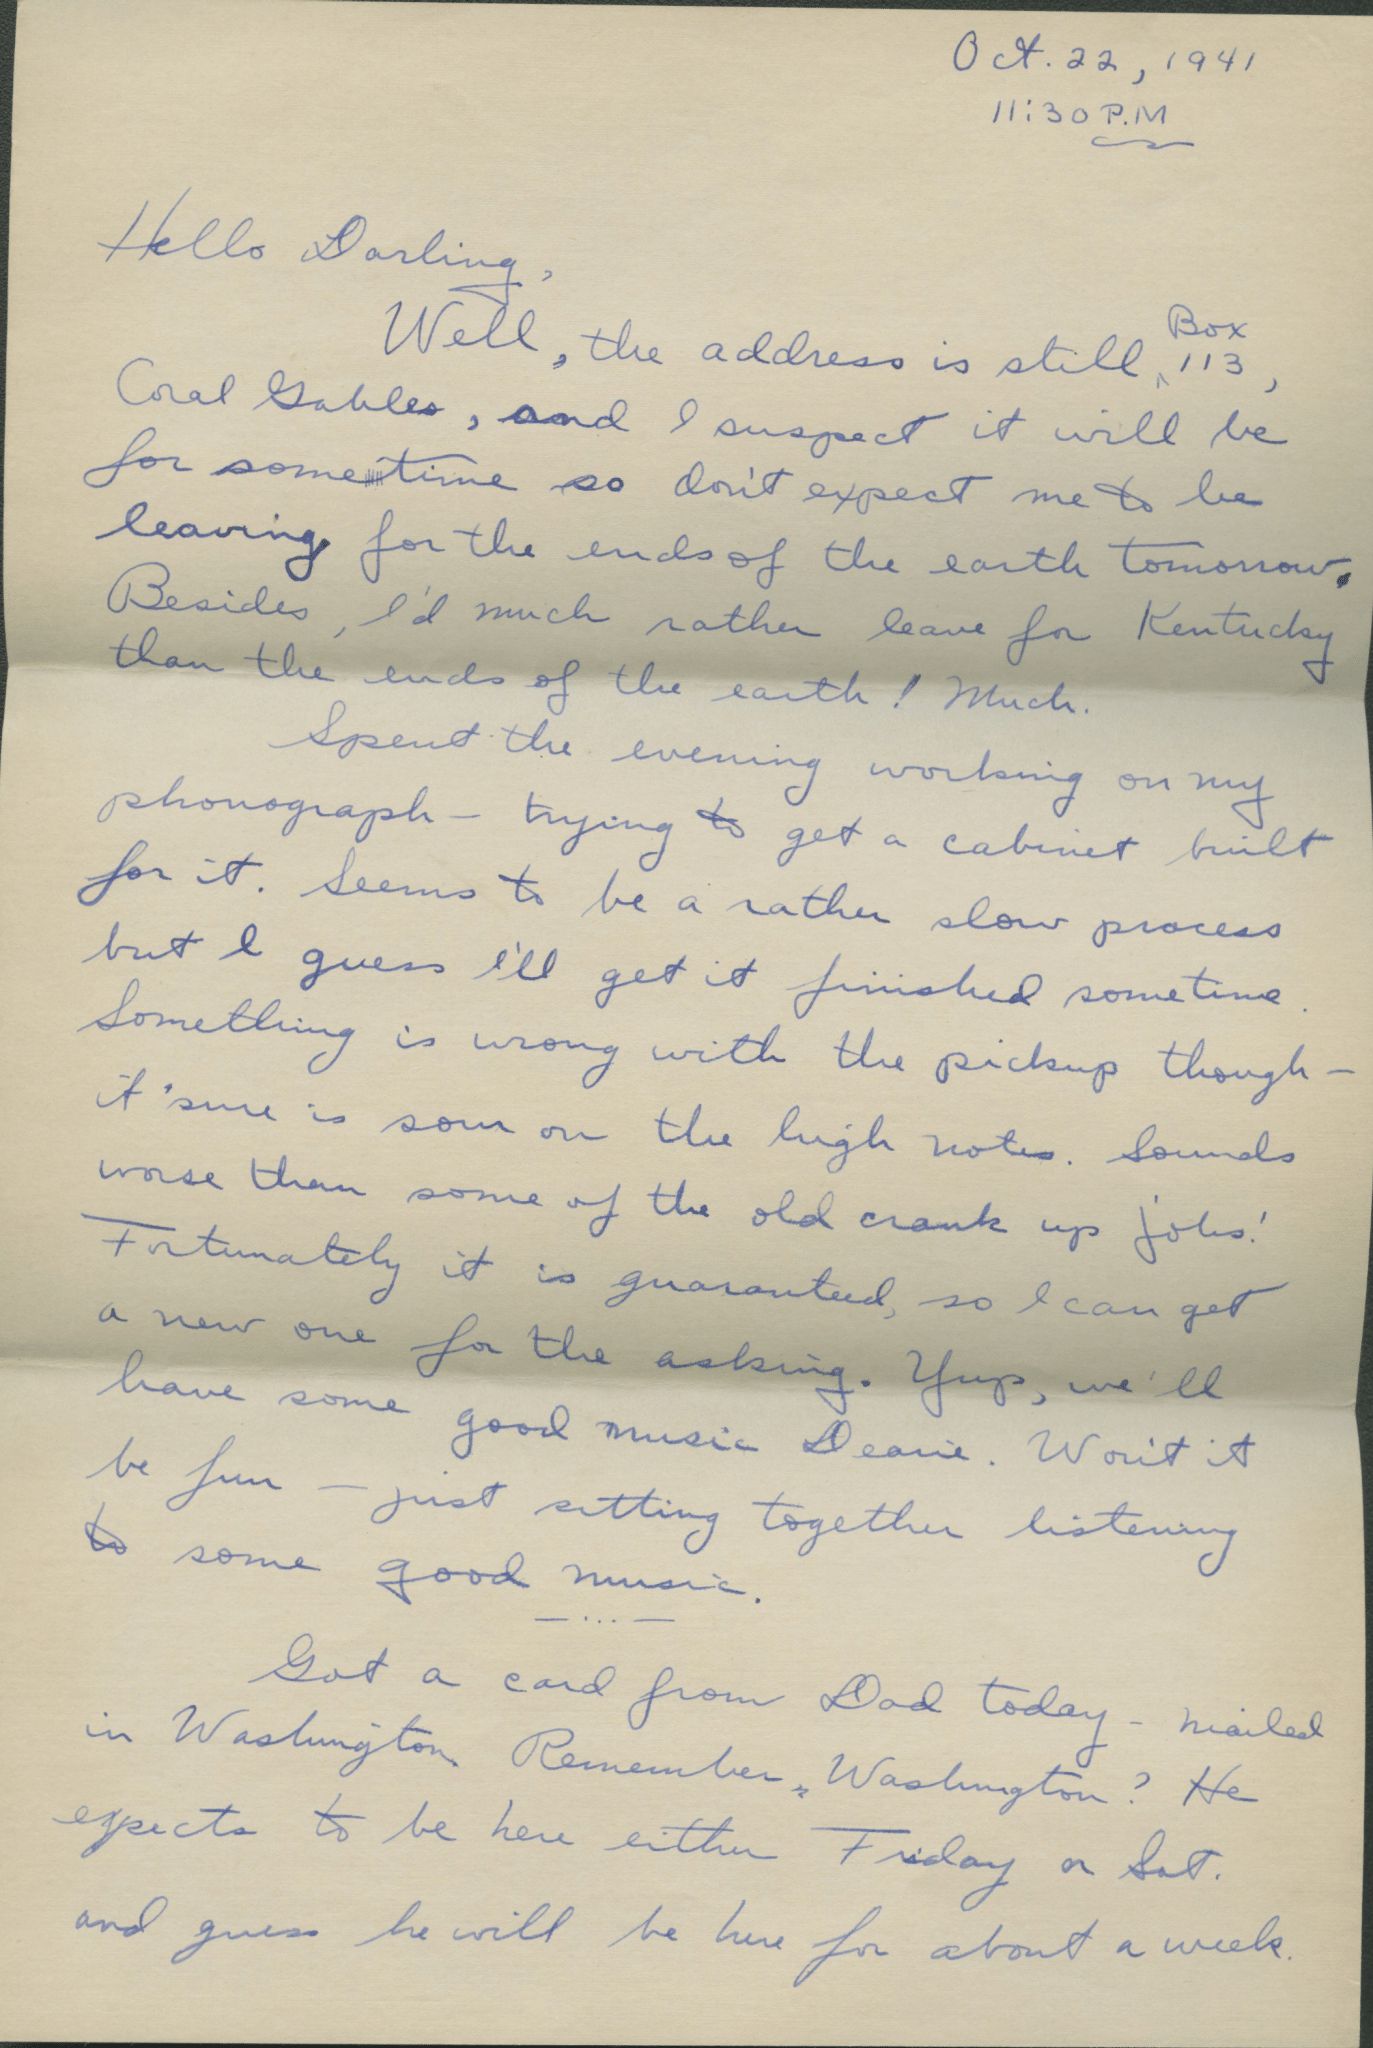 Oct. 22, 1941
11:30 P.M
Hello Darling,
Well, the address is still Box 113,
Coral Gables, and I suspect it will be
for sometime so don't expect me to be
leaving for the ends of the earth tomorrow.
Besides, I'd much rather leave for Kentucky
than the ends of the earth! Much.
Spent the evening working on my
phonograph - trying to get a cabinet built
for it. Seems to be a rather slow process
but I guess I'll get it finished sometime.
Something is wrong with the pickup though -
it sure is sour on the high notes. Sounds
worse than some of the old crank up jobs!
Fortunately it is guaranteed, so I can get
a new one for the asking. Yup, we'll
have some good music Dearie. Won't it
be fun - just sitting together listening
to some good music.
— ... —
Got a card from Dad today - mailed
in Washington. Remember, Washington? He
expects to be here either Friday or Sat.
and guess he will be here for about a week.